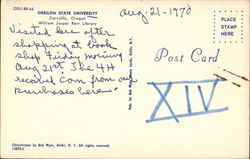 OSU-RR-66
OREGON STATE UNIVERSITY
Corvallis, Oregon
William Jasper Kerr Library
Aug-21-1970
Visited here after
shopping at book
shop Friday morning
Aug 21st. The 4H
received Com from our
purchases here.
Post Card
PLACE
STAMP
HERE
XIV
Pub. by Bob Wyer Cards, Delhi, N. Y.
Ektachrome by Bob Wyer, Delhi, N. Y. All rights reserved.